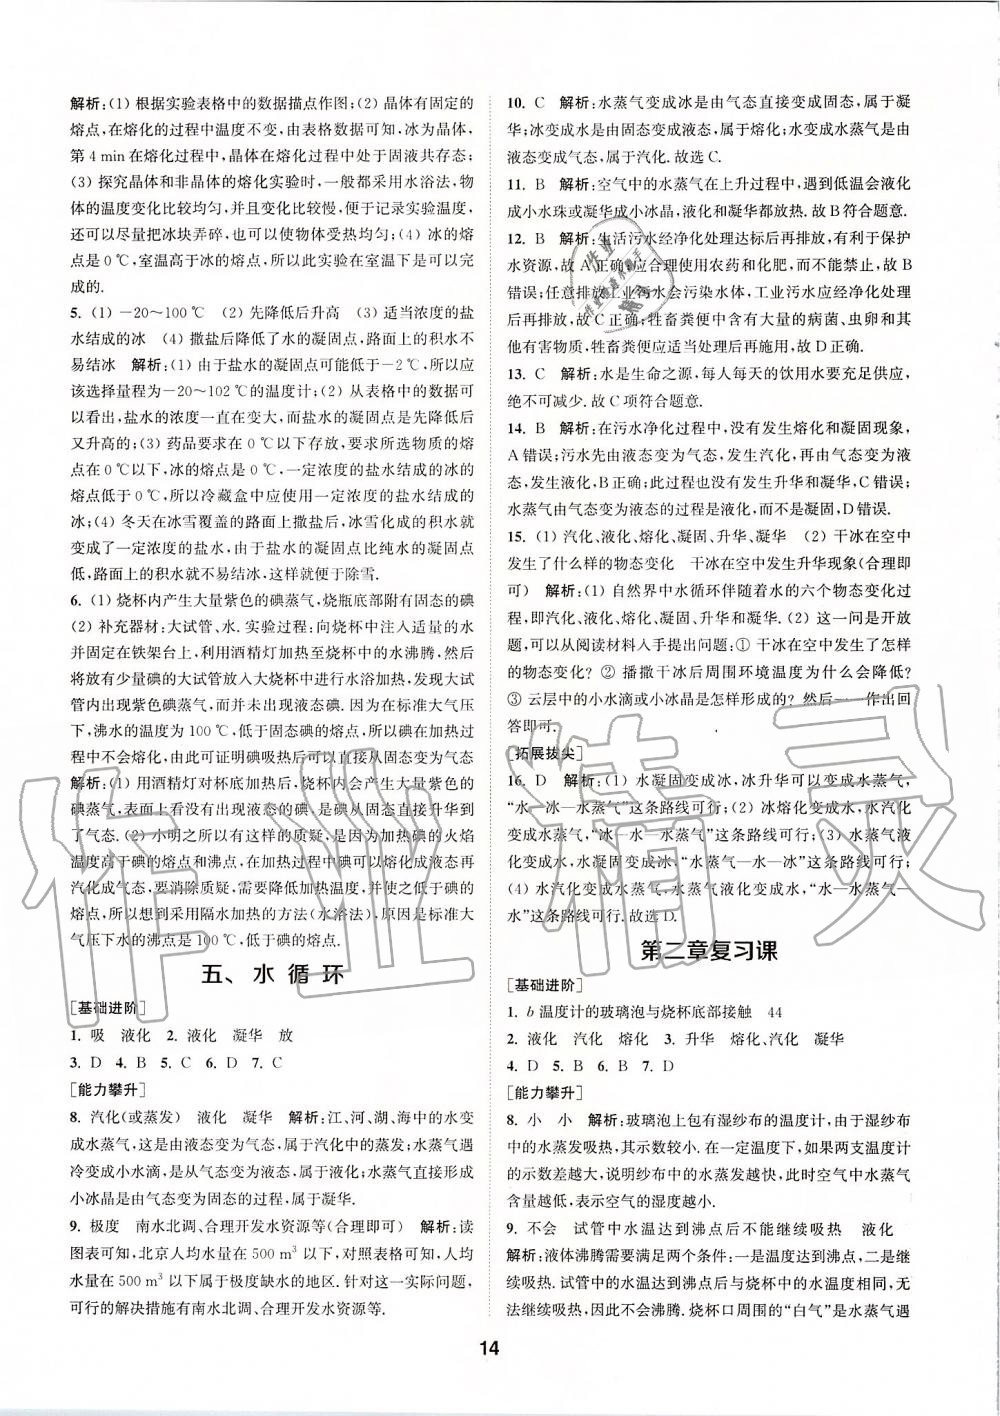 解析:(1) 根据实验表格中的数据描点作图;(2) 晶体有固定的
熔点,在熔化的过程中温度不变,由表格数据可知,冰为晶体,
第 4 min 在熔化过程中,晶体在熔化过程中处于固液共存态;
(3) 探究晶体和非晶体的熔化实验时,一般都采用水浴法,物
体的温度变化比较均匀,并且变化比较慢,便于记录实验温度,
还可以尽量把冰块弄碎,也可以使物体受热均匀;(4) 冰的熔
点是 0 ℃,室温高于冰的熔点,所以此实验在室温下是可以完
成的.
5. (1) －20～100 ℃ (2) 先降低后升高 (3) 适当浓度的盐
水结成的冰 (4) 撒盐后降低了水的凝固点,路面上的积水不
易结冰 解析:(1) 由于盐水的凝固点可能低于－2 ℃,所以应
该选择量程为－20～102 ℃的温度计;(2) 从表格中的数据可
以看出,盐水的浓度一直在变大,而盐水的凝固点是先降低后
又升高的;(3) 药品要求在 0 ℃以下存放,要求所选物质的熔
点在 0 ℃以下,冰的熔点是 0 ℃,一定浓度的盐水结成的冰的
熔点低于 0 ℃,所以冷藏盒中应使用一定浓度的盐水结成的
冰;(4) 冬天在冰雪覆盖的路面上撒盐后,冰雪化成的积水就
变成了一定浓度的盐水,由于盐水的凝固点比纯水的凝固点
低,路面上的积水就不易结冰,这样就便于除雪.
6. (1) 烧杯内产生大量紫色的碘蒸气,烧瓶底部附有固态的碘
(2) 补充器材:大试管、水. 实验过程:向烧杯中注入适量的水
并固定在铁架台上,利用酒精灯加热至烧杯中水沸腾,然后
将放有少量碘的大试管放入大烧杯中进行水浴加热,发现大试
管内出现紫色碘蒸气,而并未出现液态碘. 因为在标准大气压
下,沸水的温度为 100 ℃,低于固态碘的熔点,所以碘在加热过
程中不会熔化,由此可证明碘吸热后可以直接从固态变为气态
解析:(1) 用酒精灯对杯底加热后,烧杯内会产生大量紫色的
碘蒸气,表面上看没有出现液态的碘,碘从固态直接升华到
了气态.(2) 小明之所以有这样的质疑,是因为加热碘的火焰
温度高于碘的熔点和沸点,在加热过程中碘可以熔化成液态再
汽化成气态,要消除质疑,需要降低加热温度,并使之低于碘的
熔点,所以想到采用隔水加热的方法(水浴法),原因是标准大
气压下水的沸点是 100 ℃,低于碘的熔点.
五、水循环
[基础进阶]
1. 吸 液化 2. 液化 凝华 放
3. D 4. B 5. C 6. D 7. C
[能力攀升]
8. 汽化(或蒸发) 液化 凝华 解析:江、河、湖、海中的水变
成水蒸气,这是由液态变为气态,属于汽化中的蒸发;水蒸气遇
冷变成小水滴,是从气态变为液态,属于液化;水蒸气直接形成
小冰晶是由气态变为固态的过程,属于凝华.
9. 极度 南水北调、合理开发水资源等(合理即可) 解析:读
图表可知,北京人均水量在 500 m³ 以下,对照表格可知,人均
水量在 500 m³ 以下属于极度缺水的地区. 针对这一实际问题,
可行的解决措施有南水北调、合理开发水资源等.
10. C 解析:水蒸气变成冰是由气态直接变成固态,属于凝
华;冰变成水是由固态变成液态,属于熔化;水变成水蒸气是由
液态变成气态,属于汽化. 故选 C.
11. B 解析:空气中的水蒸气在上升过程中,遇到低温会液化
成小水珠或凝华成小冰晶,液化和凝华都放热. 故 B 符合题意.
12. B 解析:生活污水经净化处理达标后再排放,有利于保护
水资源,故 A 正确;应合理使用农药和化肥,而不能禁止,故 B
错误;任意排放工业污水会污染水体,工业污水应经净化处理
后再排放,故 C 正确;牲畜粪便中含有大量的病菌、虫卵和其
他有害物质,牲畜粪便应适当处理后再施用,故 D 正确.
13. C 解析:水是生命之源,每人每天的饮用水要充足供应,
绝不可减少. 故 C 项符合题意.
14. B 解析:在污水净化过程中,没有发生熔化和凝固现象,
A 错误;污水先由液态变为气态,发生汽化,再由气态变为液
态,发生液化;此过程也没有发生升华和凝华,C 错误;
水蒸气由气态变为液态的过程是液化,而不是凝固,D 错误.
15. (1) 汽化、液化、熔化、凝固、升华、凝华 (2) 干冰在空中
发生了什么样的物态变化 干冰在空中发生升华现象(合理即
可) 解析:(1) 自然界中水循环伴随着水的六个物态变化过
程,即汽化、液化、熔化、凝固、升华和凝华.(2) 这一问是开放
题,可以从阅读材料入手提出问题:① 干冰在空中发生了怎样
的物态变化? ② 播撒干冰后周围环境温度为什么会降低?
③ 云层中的小水滴或小冰晶是怎样形成的? 然后一一作出回
答即可.
[拓展拔尖]
16. D 解析:(1) 水凝固变成冰,冰升华可以变成水蒸气,
“水—冰—水蒸气”这条路线可行;(2) 冰熔化变成水,水汽化
变成水蒸气,“冰—水—水蒸气”这条路线可行;(3) 水蒸气液
化变成水,水凝固变成冰,“水蒸气—水—冰”这条路线可行;
(4) 水汽化变成水蒸气,水蒸气液化变成水,“水—水蒸气—
水”这条路线可行. 故选 D.
第二章复习课
[基础进阶]
1. b 温度计的玻璃泡与烧杯底部接触 44
2. 液化 汽化 熔化 3. 升华 熔化、汽化 凝华
4. D 5. B 6. B 7. D
[能力攀升]
8. 小 小 解析:玻璃泡上包有湿纱布的温度计,由于湿纱布
中的水蒸发吸热,其示数较小. 在一定温度下,如果两支温度计
的示数差越大,说明纱布中的水蒸发越快,此时空气中水蒸气
含量越低,表示空气的湿度越小.
9. 不会 试管中水温达到沸点后不能继续吸热 液化
解析:液体沸腾需要满足两个条件:一是温度达到沸点,二是继
续吸热. 试管中的水温达到沸点后与烧杯中的水温度相同,无
法继续吸热,因此不会沸腾. 烧杯口周围的“白气”是水蒸气遇
14
作业精灵